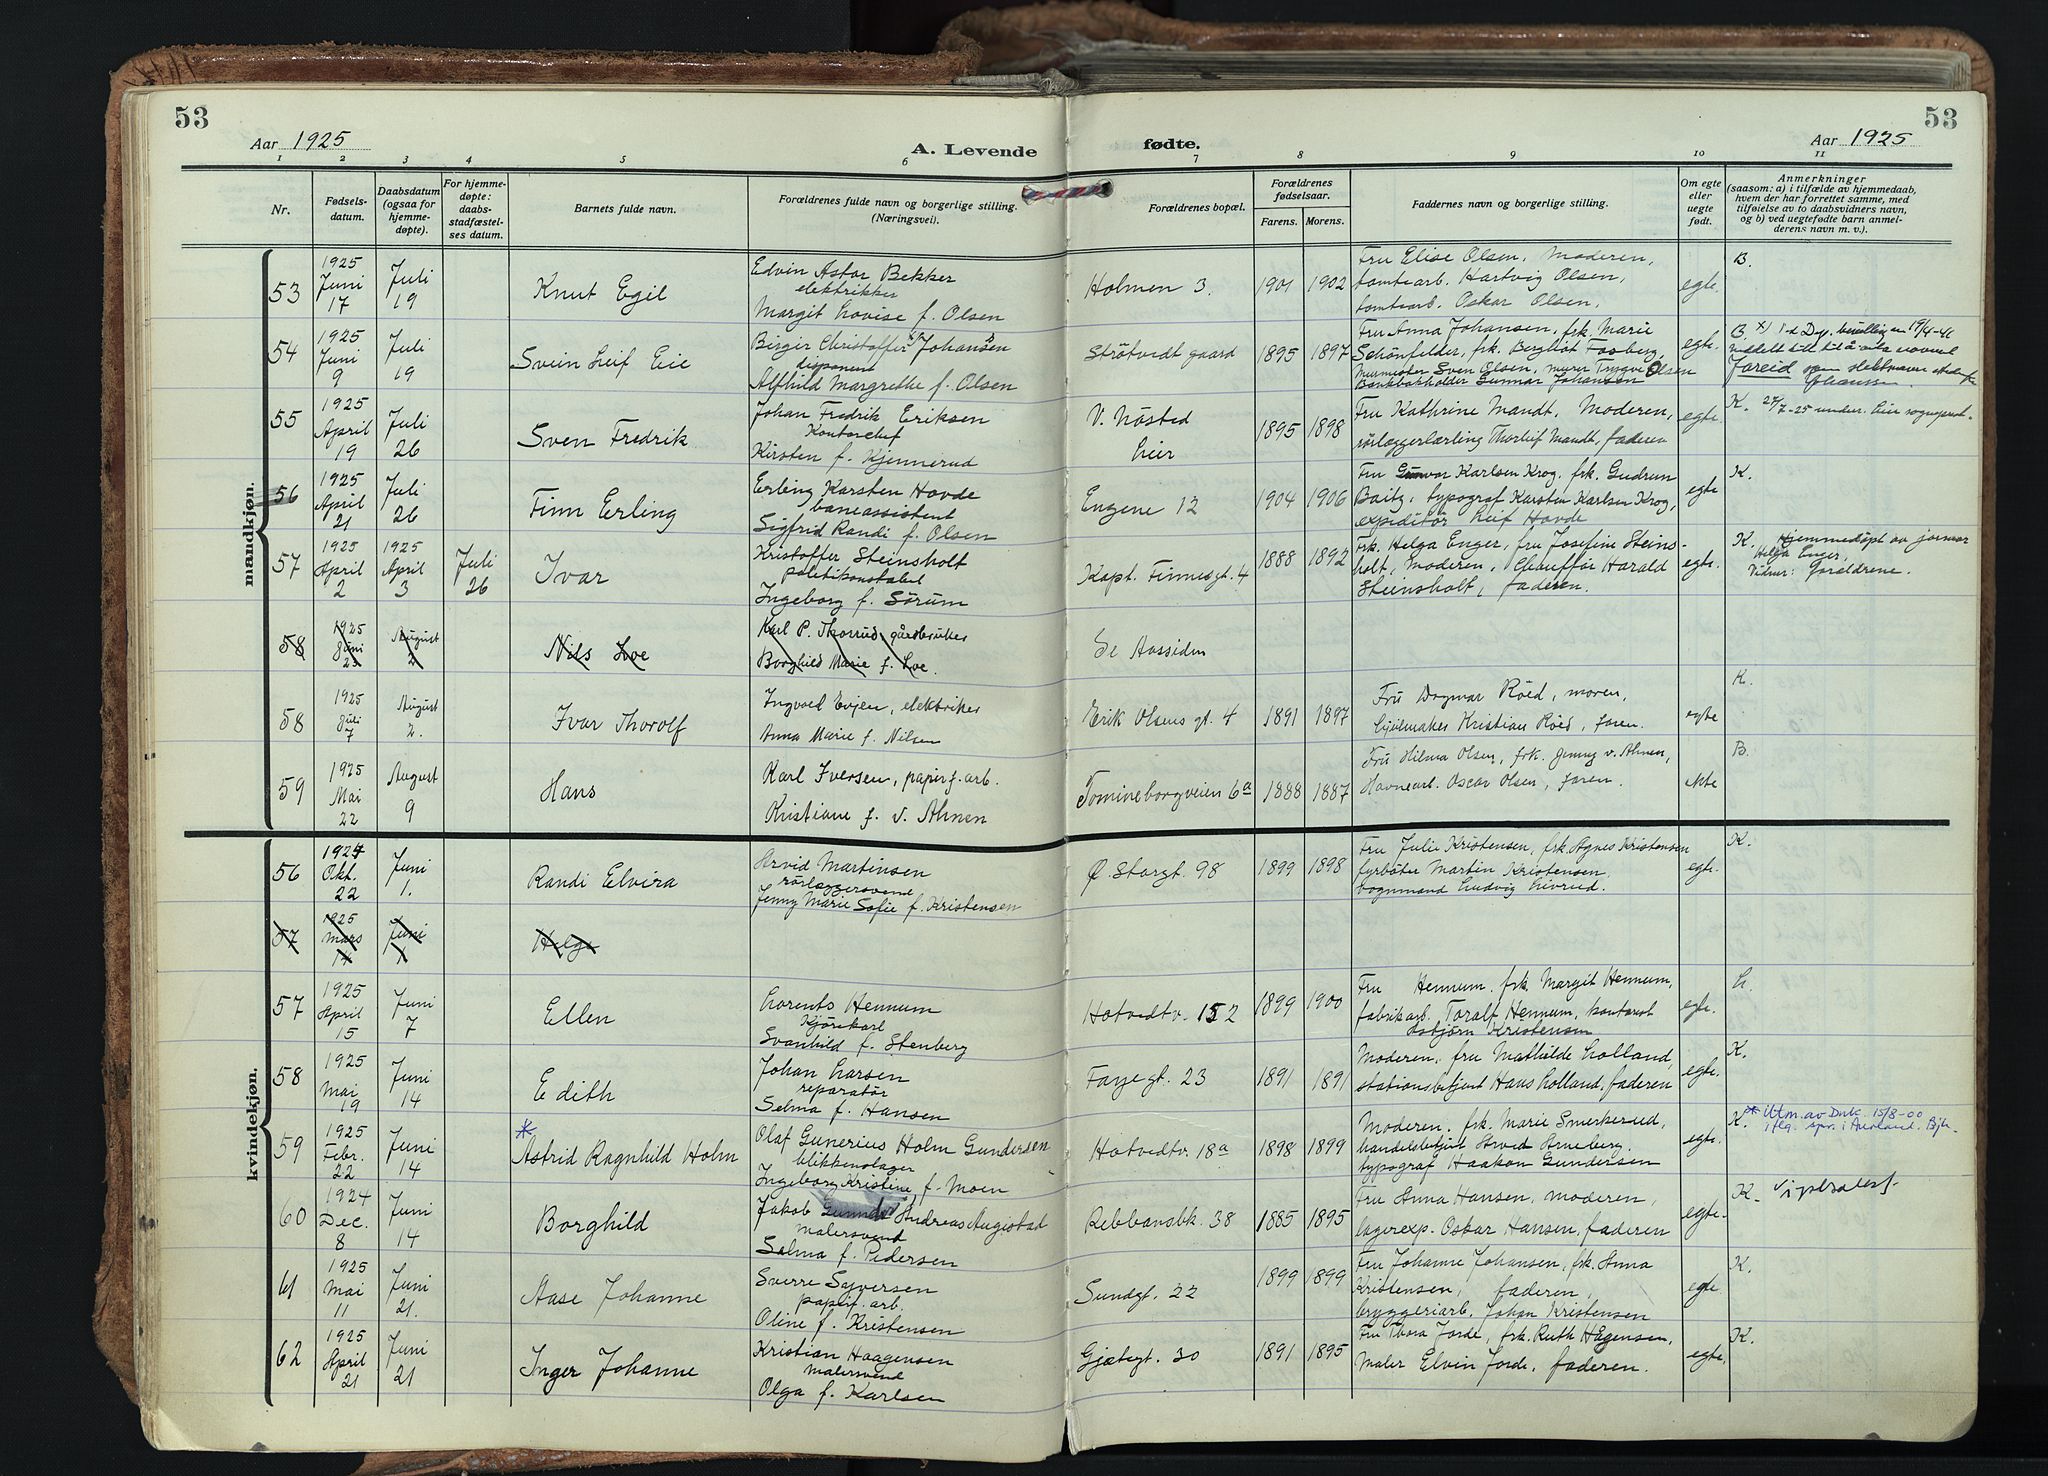 53
Aar 1925
A. Levende
fødte.
53
Aar 1925
1 2 3 4 5 6 7 8 9 10 11
Nr.
Fødsels-
datum.
Daabsdatum
(ogsaa for
hjemme-
døpte).
For hjemme-
døpte:
daabs-
stadfæstel-
ses datum.
Barnets fulde navn.
Forældrenes fulde navn og borgerlige stilling.
(Næringsvei).
Forældrenes bopæl.
Forældrenes
fødselsaar.
Farens. Morens.
Faddernes navn og borgerlige stilling.
Om egte
eller
uegte
født.
Anmerkninger
(saasom: a) i tilfælde av hjemmedaab,
hvem der har forrettet samme, med
tilføielse av to daabsvidners navn,
og b) ved uegtefødte barn anmel-
derens navn m. v.).
mandkjøn.
53
1925
Juni
17
Juli
19
Knut Egil
Edvin Astor Bekker
elektriker
Margit Lovise f. Olsen
Holmen 3.
1901 1902
Fru Elise Olsen, Moderen,
tomtearb. Hartvig Olsen,
tomtearb. Oskar Olsen.
egte.
B.
54
1925
Juni
9
Juli
19
Svein Leif Eie
Birger Christoffer x) Johansen
disponent
Alfhild Margrethe f. Olsen
Strøtvedt gaard
1895 1897
Fru Anna Johansen, frk. Marie
Schönfelder, frk. Bergljot Fosberg,
Murmester Sven Olsen, murer Trygve Olsen
Bankbokholder Gunnar Johansen
egte.
B. x) J.d. Dep. bevilling en 19/4-41
meddelt till. til å anta navnet
Joreid som slektsnavn istedenfor
Johansen.
55
1925
April
19
Juli
26
Sven Fredrik
Johan Fredrik Eriksen
Kontorchef
Kirsten f. Kjennerud
V. Nøsted
Lier
1895 1898
Fru Kathrine Mandt, Moderen,
rørlæggerlærling Thorleif Mandt, faderen
egte.
K. 27/7-25 under. Lier sogneprest.
56
1925
April
21
Juli
26
Finn Erling
Erling Karsten Hovde
baneassistent
Sigfrid Randi f. Olsen
Engene 12
1904 1906
Fru Gunvor Karlsen Krog, frk. Gudrun
Baitz, typograf Karsten Karlsen Krog,
expeditør Leif Hovde
egte
K.
57
1925
April
2
1925
April
3
Juli
26
Ivar
Kristoffer Steinsholt
politikonstabel
Ingeborg f. Sørum
Kapt. Finnesgt. 4
1888 1892
Frk. Helga Enger, fru Josefine Steins-
holt, Moderen, Chauffør Harald
Steinsholt, faderen.
egte.
K. Hjemmedøpt av jormor
Helga Enger,
Vidner: Forældrene.
58
1925
Juni
23
August
2
Nils Loe
Karl P. Thorrud, gårdbruker
Borghild Marie f. Loe.
Se Aassiden
58
1925
Juli
7
August
2.
Ivar Thorolf
Ingvald Evjen, elektriker
Anna Marie f. Nilsen
Erik Olsens gt. 4
1891 1897
Fru Dagmar Röed, moren,
Kristian Röed, faren.
egte
K.
59
1925
Mai
22
August
9
Hans
Karl Iversen, papirf. arb.
Kristiane f. v. Ahnen
Tomineborgveien 6a
1888 1887
Fru Hilma Olsen, frk. Jenny v. Ahnen,
Havnearb. Oscar Olsen, faren.
ekte
B.
kvindekjøn.
56
1924
Okt.
22
Juni
1.
Randi Elvira
Arvid Martinsen
rørlæggersvend
Jenny Marie Sofie f. Kristensen
Ø. Storgt. 98
1899 1898
Fru Julie Kristensen, frk. Agnes Kristensen
fyrbøter Martin Kristensen,
vognmand Ludvig Livrud.
egte.
K.
57
1925
Mars
14
Juni
1
Helge
57
1925
April
15
Juni
7
Ellen
Lorents Hennum
Kjørekarl
Svanhild f. Stenberg
Hotvedtv. 152
1899 1900
Fru Hennum, frk Margit Hennum,
fabrikarb. Toralf Hennum, kontorist
Asbjørn Kristensen
egte.
L.
58
1925
Mai
19
Juni
14
Edith
Johan Larsen
reparatør
Selma f. Hansen
Fayegt. 23
1891 1891
Moderen, fru Mathilde Lolland,
stationsbetjent Hans Lolland, faderen
egte.
K.
59
1925
Febr.
22
Juni
14
*
Astrid Ragnhild Holm
Olaf Gunerius Holm Gundersen
blikkenslager
Ingeborg Kristine f. Moen
Hotvedtv. 18a
1898 1899
Moderen, frk. Marie Smerkerud,
handelsbetjent Arvid Arneberg,
typograf Haakon Gundersen
egte.
K. * Uttm. av Dnk. 15/8-00
60
1924
Dec.
8
Juni
14
Borghild
Jakob Andreas Augistad
malersvend
Selma f. Pedersen
Rebbansbk. 38
1885 1895
Fru Anna Hansen, moderen,
lagerexp. Oskar Hansen, faderen
egte.
K.
61
1925
Mai
11
Juni
21.
Aase Johanne
Sverre Syversen
papirf. arb.
Oline f. Kristensen
Sundgt. 22
1899 1899
Fru Johanne Johansen, frk. Anna
Kristensen, faderen,
bryggeriarb. Johan Kristensen
egte
K.
62
1925
April
21
Juni
21
Inger Johanne
Kristian Haagensen
malersvend
Olga f. Karlsen
Gjætergt. 30
1891 1895
Fru Thora Jorde, frk. Ruth Hagensen,
Maler Elvin Jorde, faderen.
egte.
K.